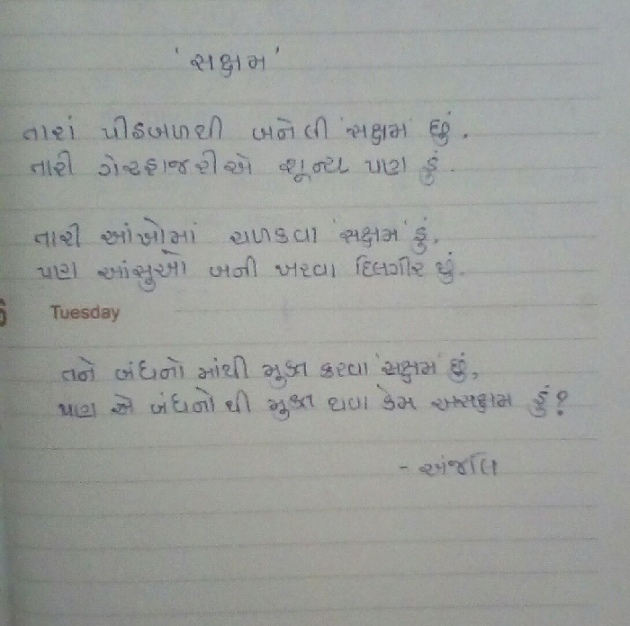 'સક્ષમ'
તારાં પીઠબળથી બનેલી 'સક્ષમ' છું.
તારી ગેરહાજરીએ શૂન્ય પણ હું.
તારી આંખોમાં ચળકવા 'સક્ષમ' હું,
પણ આંસુઓ બની ખરવા દિલગીર છું.
Tuesday
તને બંધનો માંથી મુક્ત કરવા 'સક્ષમ' છું,
પણ એ બંધનો થી મુક્ત થવા કેમ અસક્ષમ હું?
- અંજલિ